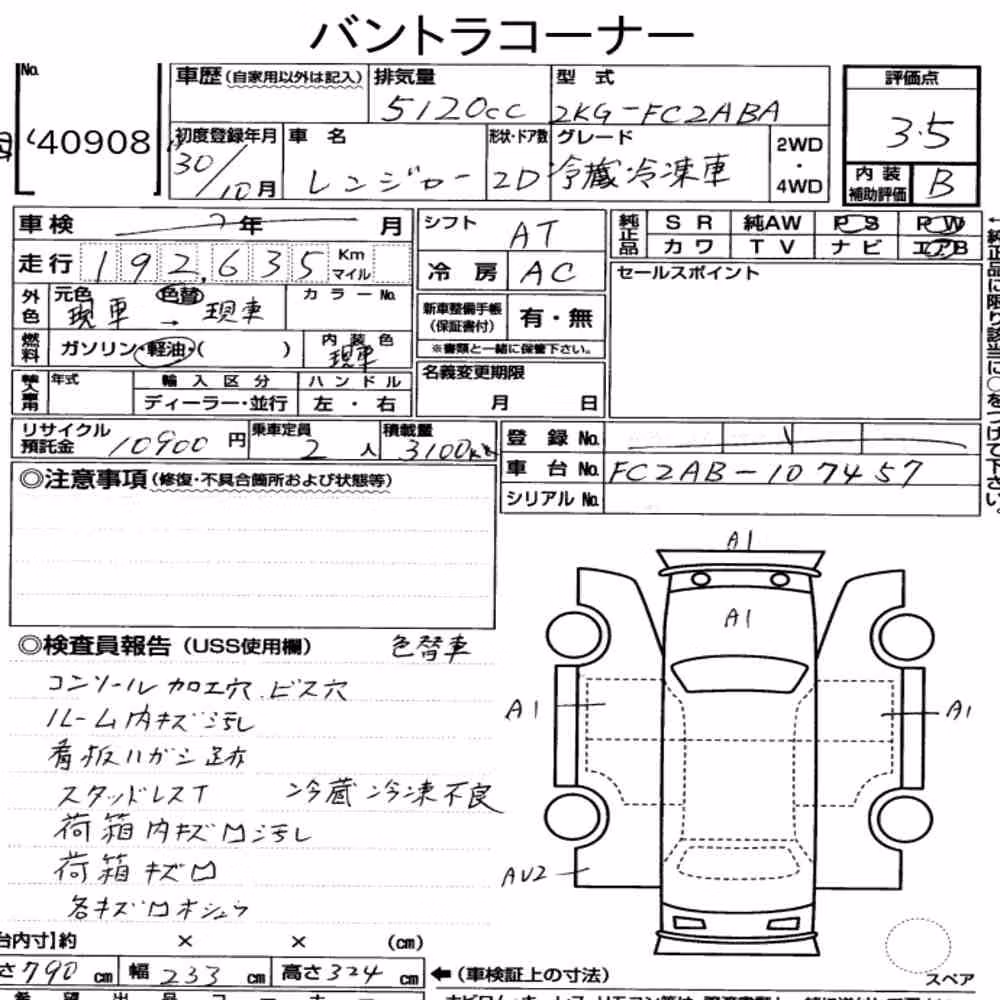 バントラコーナー
No.
40908
車歴（自家用以外は記入） 排気量 型式 評価点
5120cc 2KG-FC2ABA 3.5
初度登録年月 車名 形状・ドア数 グレード 2WD・4WD
30/10月 レンジャー 2D 冷蔵冷凍車
内装補助評価 B
車検 年 月 シフト AT
純正品 SR 純AW PS PW
カワ TV ナビ エアB
走行 192,635 Km マイル
冷房 AC
セールスポイント
外色 元色 現車 → 色替 現車 カラーNo.
新車整備手帳（保証書付） 有・無
※書類と一緒に保管下さい。
燃料 ガソリン・軽油・（ ） 内装色 現車
名義変更期限
月 日
輸入車用 年式 輸入区分 ハンドル
ディーラー・並行 左・右
リサイクル預託金 10900円 乗車定員 2人 積載量 3100kg
登録No.
車台No. FC2AB-107457
シリアルNo.
←純正品に限り該当に○をつけて下さい。
◎注意事項（修復・不具合箇所および状態等）
◎検査員報告（USS使用欄） 色替車
コンソール加工穴.ビス穴
ルーム内キズ汚し
看板ハガシ跡
スタッドレスT 冷蔵冷凍不良
荷箱内キズ凹汚し
荷箱キズ凹
各キズ凹オシュウ
A1
A1
A1
A1
AU2
台内寸】約 × × （cm）
さ790cm 幅233cm 高さ324cm
←（車検証上の寸法）
スペア
希望出品コーナー